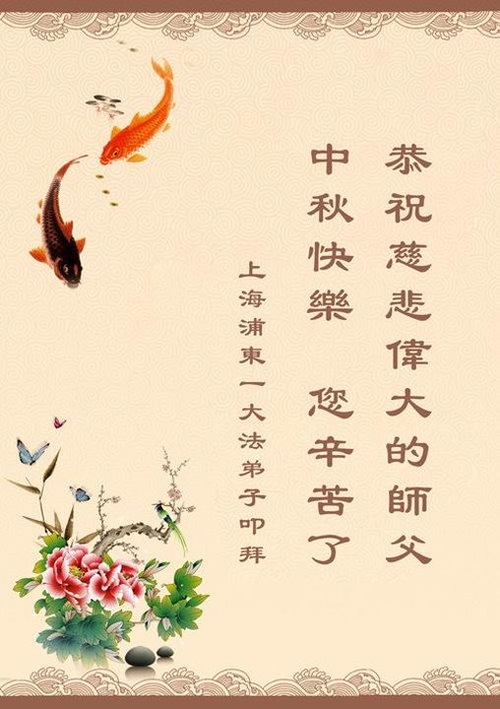 恭祝慈悲偉大的師父
中秋快樂 您辛苦了
上海浦東一大法弟子叩拜